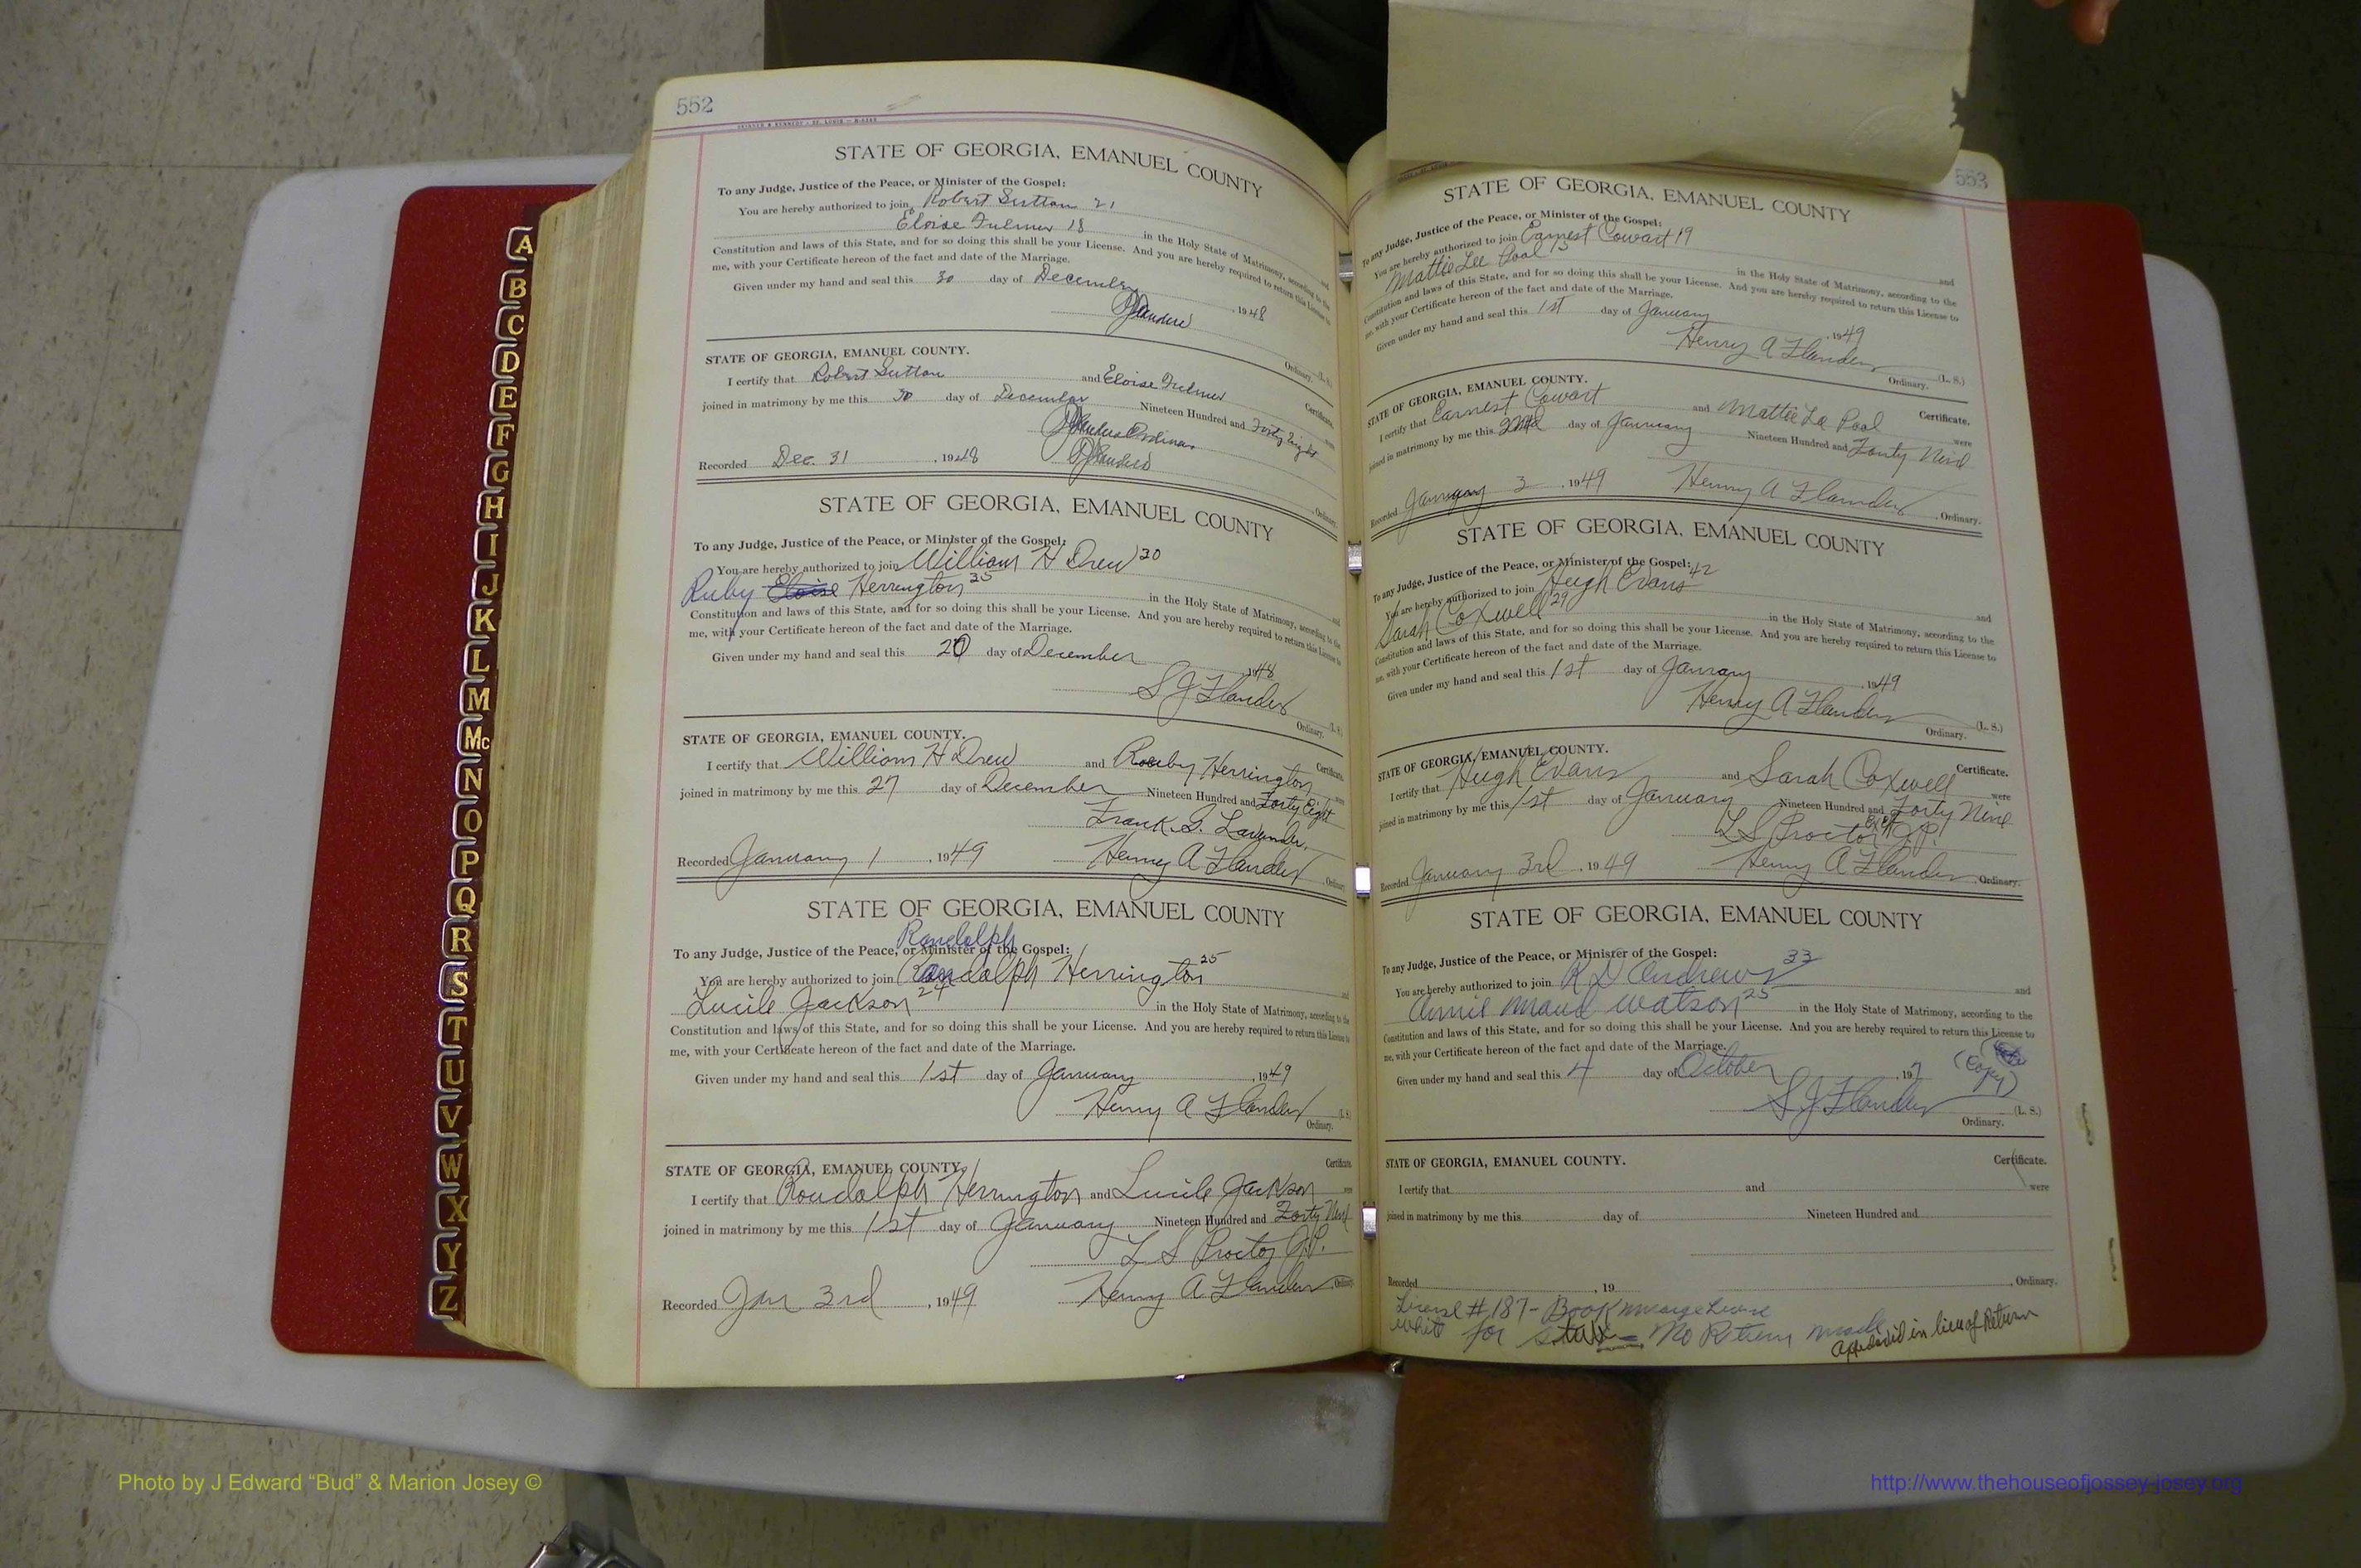 552
STATE OF GEORGIA, EMANUEL COUNTY
To any Judge, Justice of the Peace, or Minister of the Gospel:
You are hereby authorized to join Robert Sutton 21 and
Eloise Fulmer 18 in the Holy State of Matrimony, according to the
Constitution and laws of this State, and for so doing this shall be your License. And you are hereby required to return this License to
me, with your Certificate hereon of the fact and date of the Marriage.
Given under my hand and seal this 30 day of December, 1948
Ordinary. (L. S.)
STATE OF GEORGIA, EMANUEL COUNTY. Certificate.
I certify that Robert Sutton and Eloise Fulmer were
joined in matrimony by me this 30 day of December Nineteen Hundred and Forty Eight
Recorded Dec. 31, 1948 Ordinary.
STATE OF GEORGIA, EMANUEL COUNTY
To any Judge, Justice of the Peace, or Minister of the Gospel:
You are hereby authorized to join William H Drew 30 and
Ruby Eloise Herrington 35 in the Holy State of Matrimony, according to the
Constitution and laws of this State, and for so doing this shall be your License. And you are hereby required to return this License to
me, with your Certificate hereon of the fact and date of the Marriage.
Given under my hand and seal this 20 day of December 1948
S J Flanders (L. S.)
Ordinary.
STATE OF GEORGIA, EMANUEL COUNTY. Certificate.
I certify that William H Drew and Ruby Herrington were
joined in matrimony by me this 27 day of December Nineteen Hundred and Forty Eight
Frank G. Lavender.
Recorded January 1, 1949 Henry A Flanders Ordinary
STATE OF GEORGIA, EMANUEL COUNTY
Randolph
To any Judge, Justice of the Peace, or Minister of the Gospel:
You are hereby authorized to join Randolph Herrington 25 and
Lucile Jackson 24 in the Holy State of Matrimony, according to the
Constitution and laws of this State, and for so doing this shall be your License. And you are hereby required to return this License to
me, with your Certificate hereon of the fact and date of the Marriage.
Given under my hand and seal this 1st day of January, 1949
Henry A Flanders (L. S.)
Ordinary.
STATE OF GEORGIA, EMANUEL COUNTY. Certificate.
I certify that Roudalph Herrington and Lucile Jackson were
joined in matrimony by me this 1st day of January Nineteen Hundred and Forty Nine
L S Proctor J.P.
Recorded Jan 3rd, 1949 Henry A Flanders Ordinary.
553
STATE OF GEORGIA, EMANUEL COUNTY
To any Judge, Justice of the Peace, or Minister of the Gospel:
You are hereby authorized to join Earnest Cowart 19 and
Mattie Lee Pool in the Holy State of Matrimony, according to the
Constitution and laws of this State, and for so doing this shall be your License. And you are hereby required to return this License to
me, with your Certificate hereon of the fact and date of the Marriage.
Given under my hand and seal this 1st day of January, 1949
Henry A Flanders (L. S.)
Ordinary.
STATE OF GEORGIA, EMANUEL COUNTY. Certificate.
I certify that Earnest Cowart and Mattie Le Pool were
joined in matrimony by me this 2nd day of January Nineteen Hundred and Forty Nine
Recorded January 3, 1949 Henry A Flanders, Ordinary.
STATE OF GEORGIA, EMANUEL COUNTY
To any Judge, Justice of the Peace, or Minister of the Gospel:
You are hereby authorized to join Hugh Evans 42 and
Sarah Coxwell 29 in the Holy State of Matrimony, according to the
Constitution and laws of this State, and for so doing this shall be your License. And you are hereby required to return this License to
me, with your Certificate hereon of the fact and date of the Marriage.
Given under my hand and seal this 1st day of January, 1949
Henry A Flanders (L. S.)
Ordinary.
STATE OF GEORGIA, EMANUEL COUNTY. Certificate.
I certify that Hugh Evans and Sarah Coxwell were
joined in matrimony by me this 1st day of January Nineteen Hundred and Forty Nine
L S Proctor J.P.
Recorded January 3rd, 1949 Henry A Flanders, Ordinary.
STATE OF GEORGIA, EMANUEL COUNTY
To any Judge, Justice of the Peace, or Minister of the Gospel:
You are hereby authorized to join R D Andrews 33 and
Annie Maud Watson 25 in the Holy State of Matrimony, according to the
Constitution and laws of this State, and for so doing this shall be your License. And you are hereby required to return this License to
me, with your Certificate hereon of the fact and date of the Marriage.
Given under my hand and seal this 4 day of October, 19 (Copy)
S J Flanders (L. S.)
Ordinary.
STATE OF GEORGIA, EMANUEL COUNTY. Certificate.
I certify that and were
joined in matrimony by me this day of Nineteen Hundred and
Recorded , 19 , Ordinary.
License # 187 - Book marriage License
white for No Return made
in lieu of Return
A
B
C
D
E
F
G
H
I
J
K
L
M
Mc
N
O
P
Q
R
S
T
U
V
W
X
Y
Z
Photo by J Edward “Bud” & Marion Josey ©
http://www.thehouseofjossey-josey.org